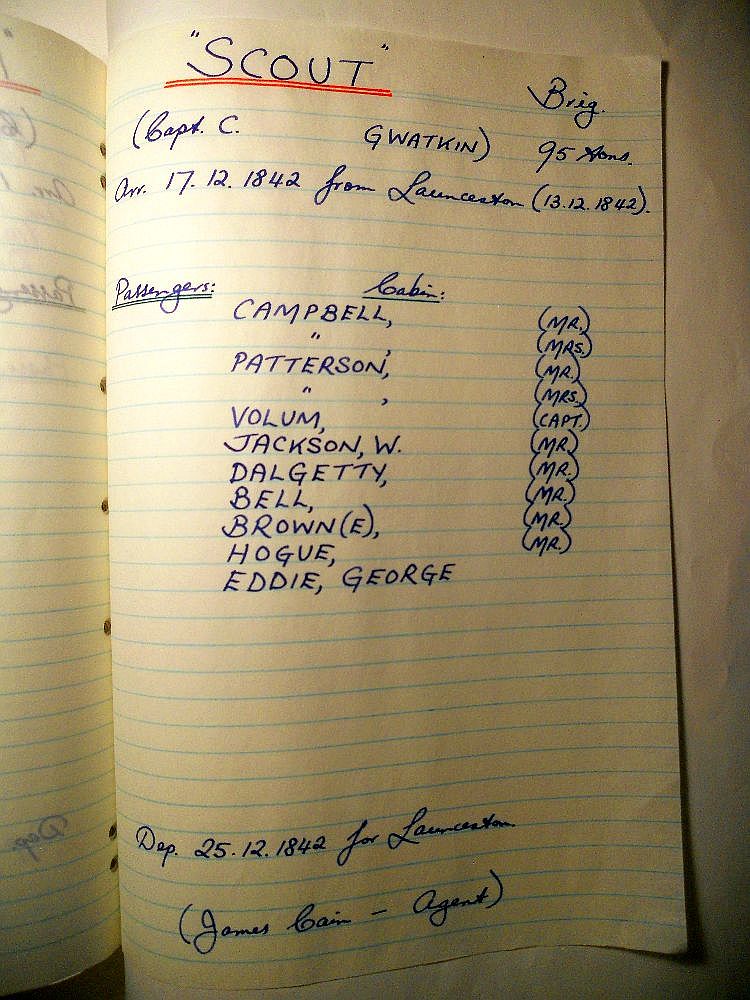 "SCOUT"
Brig.
(Capt. C. GWATKIN) 95 tons.
Arr. 17.12.1842 from Launceston (13.12.1842).
Passengers: Cabin:
CAMPBELL, (MR.)
" , (MRS.)
PATTERSON, (MR.)
" , (MRS.)
VOLUM, (CAPT.)
JACKSON, W. (MR.)
DALGETTY, (MR.)
BELL, (MR.)
BROWN(E), (MR.)
HOGUE, (MR.)
EDDIE, GEORGE
Dep. 25.12.1842 for Launceston
(James Cain - Agent)